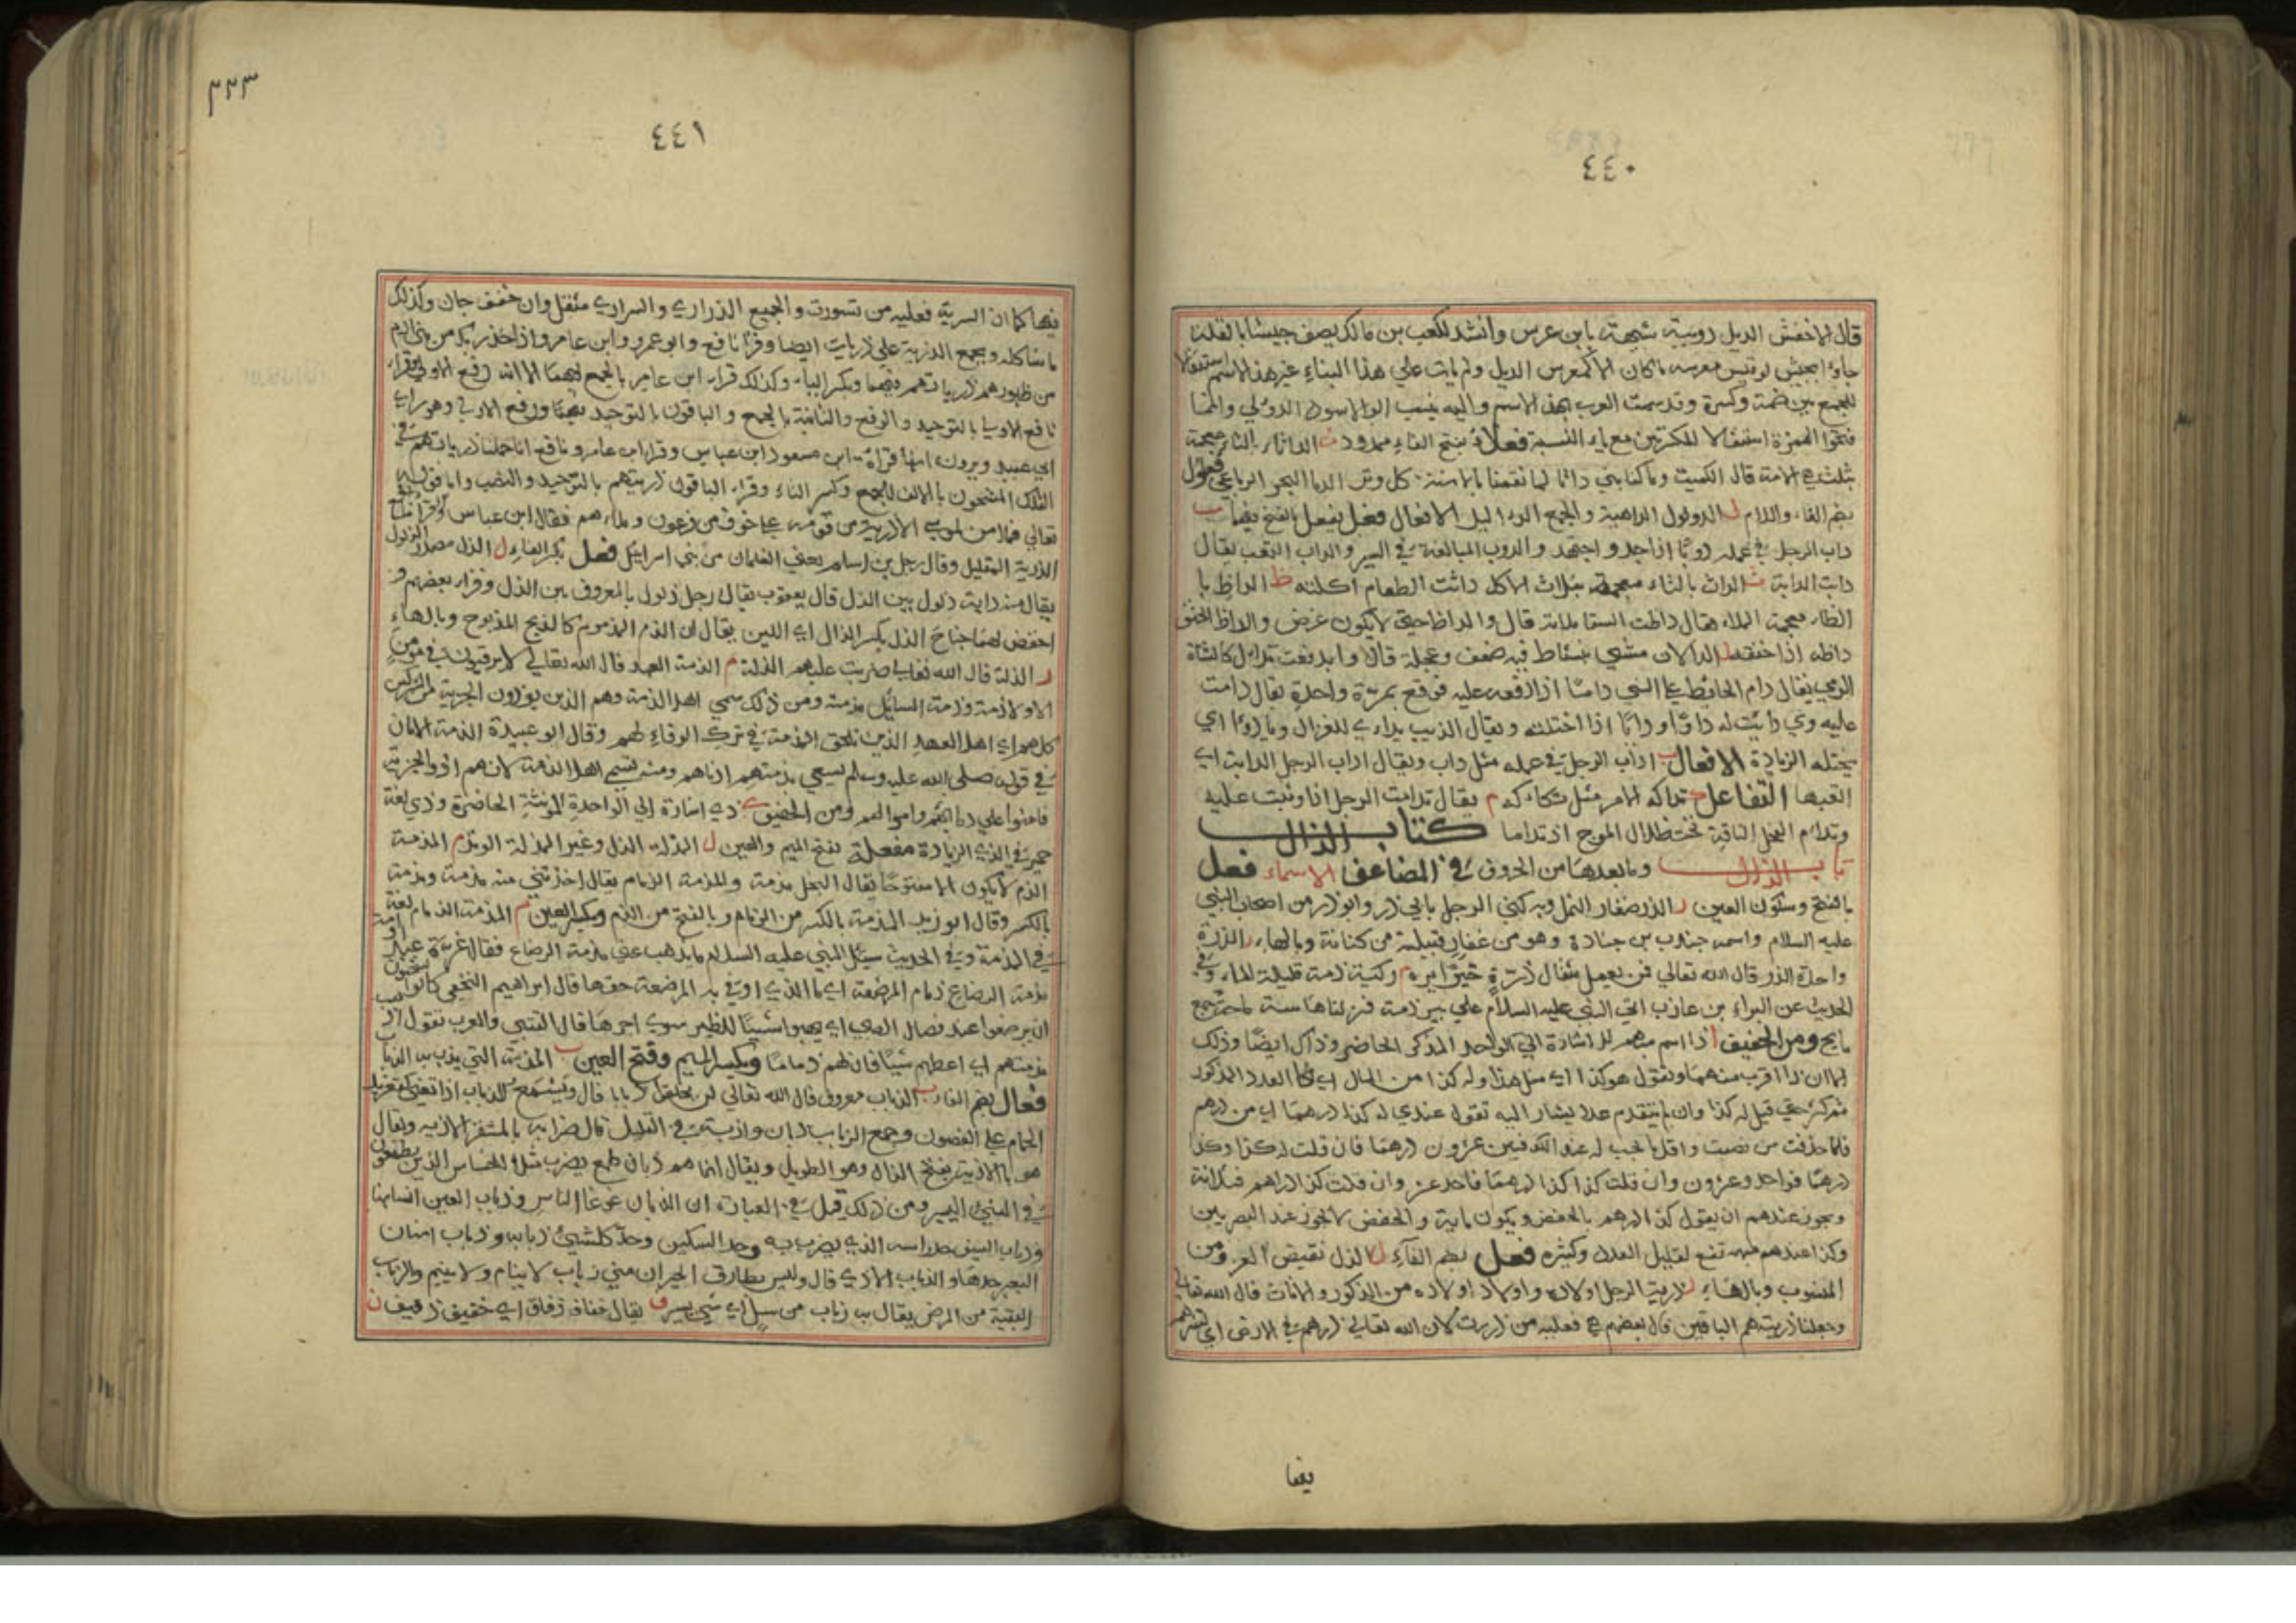 ٤٤٠
قال الاخفش الديل دويبة شبيهة بابن عرس وانشد لكعب بن مالك يصف جيشا بالقلة
جاؤا بجيش لو قيس معرسه ما كان الا كمعرس الديل ولم يات علي هذا البناء غير هذا الاسم استثقالا
للجمع بين ضمة وكسرة وقد سمت العرب بهذا الاسم واليه ينسب ابو الاسود الدؤلي وانما
فتحوا الهمزة استثقالا للكسرتين مع ياء النسبة فعلاء بفتح الفاء ممدود ث الداثاء بالثاء معجمة
بثلث هي الامة قال الكميت وما كنا بني داثاء لما بالاسنة كل وتر الرباعي فعلول
بضم الفاء واللام ل الدولول الداهية والجمع الداليل الافعال فعل يفعل بالفتح فيهما ب
داب الرجل في عمله دوبا اذا جد واجتهد والدوب المبالغة في السير والداب التعب يقال
دابت الدابة ث الداث بالثاء معجمة بثلاث الاكل داثت الطعام اكلته ظ الداظ با
الظاء معجمة الملاء يقال داظت السقا ملاته قال والداظ حتي لا يكون غرض والداظ الخنق
داظه اذا خنقه ل الدالان مشي بنشاط فيه ضعف وعجلة قال
الرمي يقال دام الحائط علي الشي داما اذا رفعه عليه فوقع بمرة واحدة يقال دامت
عليه وي دايت له داوا ودايا اذا اختلته ويقال الذيب يداي للغزال ويادوا اي
يختله الزيادة الافعال ب اداب الرجل في عمله مثل داب ويقال اداب الرجل الدابة اي
اتعبها التفاعل م يقال تدامت الرجل اذا وثبت عليه
كتاب الذال
باب الذال وما بعدها من الحروف في المضاعف الاسماء فعل
بالفتح وسكون العين ر الذر صغار النمل وبه كني الرجل بابي ذر وابو ذر من اصحاب النبي
عليه السلام واسمه جندب بن جنادة وهو من غفار قبيلة من كنانة وبالهاء ر الذرة
واحدة الذر قال الله تعالي فمن يعمل مثقال ذرة خيرا يره م وكية ذمة قليلة الماء وفي
الحديث عن البراء بن عازب اتي النبي عليه السلام علي بير ذمة فنزلناها ستة
مايح ومن الخفيف ا ذا اسم مبهم للاشارة الي الواحد المذكر الحاضر وذاك ايضا وذلك
الا ان ذا اقرب منهما وتقول هو كذا اي مثل هذا وله كذا من المال اي كذا العدد المذكور
وان لم يتقدم عدد يشار اليه تقول عندي له كذا درهما اي من درهم
فلما حذفت من نصبت واقل ما يجب له عند الكوفيين عشرون درهما فان قلت له كذا وكذا
درهما فواحد وعشرون وان قلت كذا كذا درهما فاحد عشر وان قلت كذا دراهم فثلاثة
ويجوز عندهم ان يقول كذا درهم بالخفض ويكون ماية والخفض لا يجوز عند البصريين
وكذا عندهم مبهم تقع لقليل العدد وكثيره فعل بضم الفاء ل الذل نقيض العز ومن
المنسوب وبالهاء ر ذرية الرجل اولاده واولاد اولاده من الذكور والاناث قال الله تعالي
وجعلنا ذريته هم الباقين قال بعضهم هي فعلية من ذررت لان الله تعالي ذرهم في الارض اي نشرهم
يفا
٣٣٣
٤٤١
فيها كما ان السرية فعلية من تسررت والجميع الذراري والسراري مثقل وان خفف جاز وكذلك
ما شاكله ويجمع الذرية علي ذريات ايضا وقرا نافع وابو عمرو وابن عامر واذ اخذ ربك من بني ادم
من ظهورهم ذرياتهم فيهما وبكسر التاء وكذلك قراء ابن عامر بالجمع فيهما الا انه رفع الاولي وقراء
نافع الاولي بالتوحيد والرفع والثانية بالجمع والباقون بالتوحيد فيهما ورفع الاولي وهو راي
ابي عبيد ويروي انها قراة ابن مسعود ابن عباس وقرا ابن عامر ونافع انا حملنا ذرياتهم في
الفلك المشحون بالالف للجمع وكسر التاء وقراء الباقون ذريتهم بالتوحيد والنصب واما قوله
تعالي فما امن لموسي الا ذرية من قومه علي خوف من فرعون وملاءهم فقال ابن عباس
الذرية القليل وقال رجل بن اسلم يعني الغلمان من بني اسرائيل فعل بكسر الفاء ل الذل مصدر الذلول
يقال منه دابة ذلول بين الذل قال يعقوب يقال رجل ذلول بالمعروف بين الذل وقراء بعضهم و
اخفض لهما جناح الذل بكسر الذال اي اللين يقال ان الذم المذموم كالذبح المذبوح وبالهاء
ل الذلة قال الله تعالي ضربت عليهم الذلة م الذمة العهد قال الله تعالي لا يرقبون في مومن
الا ولا ذمة وذمة المسائل مذمته ومن ذلك سمي اهل الذمة وهم الذين يودون الجزية من المشركين
كلهم اي اهل العهد الذين تلحق المذمة في ترك الوفاء لهم وقال ابو عبيدة الذمة الامان
في قوله صلي الله عليه وسلم يسعي بذمتهم ادناهم ومنه تسمي اهل الذمة لانهم ادوا الجزية
فامنوا علي دمائهم واموالهم ومن الخفيف ي ذي اشارة الي الواحدة المونثة الحاضرة وذي لغة
حمير في الذي الزيادة مفعلة بفتح الميم والعين ل المذلة الذل وعير المذلة الوتد م المذمة
الذم لا يكون الا مفتوحا يقال البخل مذمة والمذمة الذمام يقال اخذتني منه مذمة ومذمة
بالكسر وقال ابو زيد المذمة بالكسر من الذمام وبالفتح من الذم وبكسر العين م المذمة الذمام لغة
في المذمة وفي الحديث سئل النبي عليه السلام ما يذهب عني مذمة الرضاع فقال غرة عبد او امة
مذمة الرضاع ذمام المرضعة اي ما الذي اوفي به المرضعة حقها قال ابراهيم النخعي كانوا يستحبون
ان يرضخوا عند فصال الصبي اي يهبوا شييا للظير سوي اجرها قال القتبي والعرب تقول اذهب
مذمتهم اي اعطهم شيئا فان لهم ذماما وبكسر الميم وفتح العين ب المذبة التي يذب بها الذباب
فعال بضم الفاء ب الذباب معروف قال الله تعالي لن يخلقوا ذبابا قال ويسمع للذباب اذا تغني كتغريد
الحمام علي الغصون وجمع الذباب ذبان واذبة في القليل قال ضرابة بالمشفر الاذبة ويقال
هو الاذبة بفتح الذال وهو الطويل ويقال انما هم ذبان طمع يضرب مثلا للخساس الذين يطمعون
في الشيء اليسير ومن ذلك قيل في العبارة ان الذبان غوغا الناس وذباب العين انسانها
وذباب السيف حد راسه الذي يضرب به وحد السكين وحد كل شيء ذبابه وذباب اسنان
البعير حدها والذباب الاذي قال وليس بطارق الجيران مني ذباب لا ينام ولا ينيم والذباب
البقية من المرض يقال به ذباب من سل اي شي يسير ف يقال خفاف ذفاف اي خفيف ذفيف ن